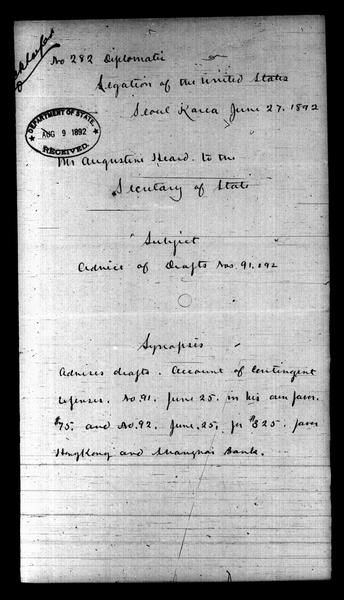 No 282 Diplomatic
Legation of the United States
Seoul Korea June 27. 1892
DEPARTMENT OF STATE
AUG 9 1892
RECEIVED
Mr Augustine Heard to the
Secretary of State
Subject
Advice of Drafts Nos. 91. &92
Synopsis
Advises drafts. Account of Contingent
Expenses. No. 91. June 25. in his own favor.
$75 and No. 92. June. 25. for $325. favor
HongKong and Shanghai Bank.